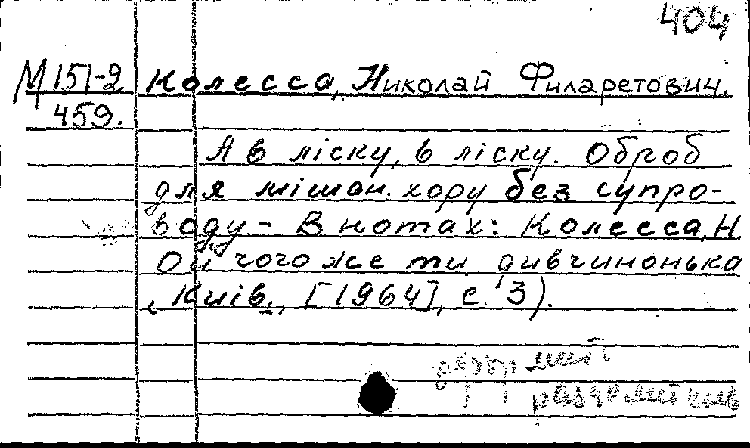 404
М 151-2 Колесса, Николай Филаретович.
459.
А в ліску, в ліску. Оброб
для мішан. хору без супро-
воду - В нотах: Колесса, Н
Ой чого же ти дивчинонька
(Киів., [1964], с. 3).